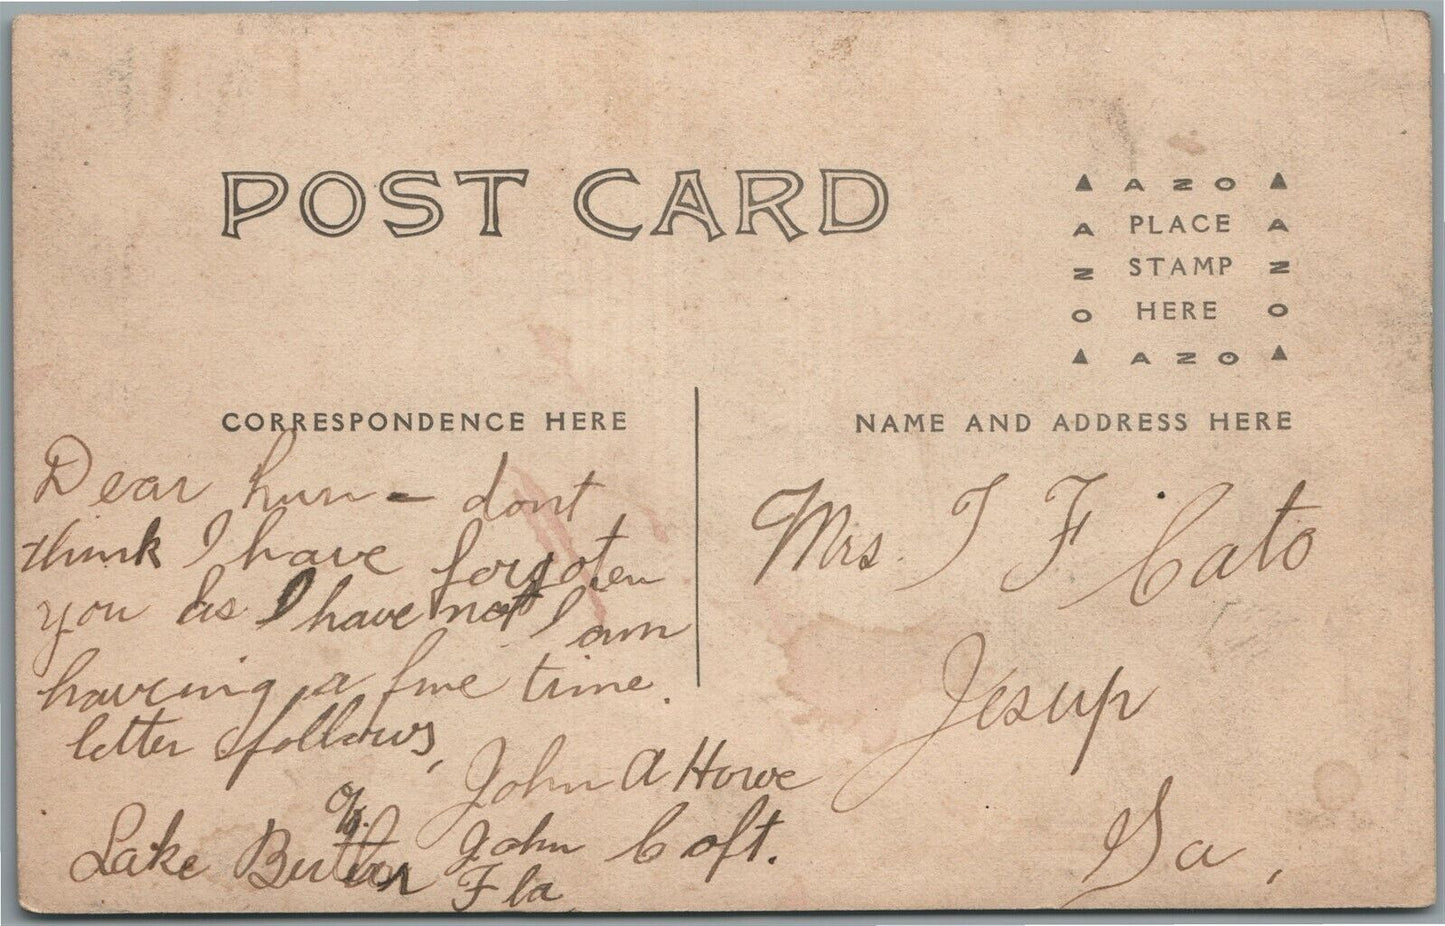 POST CARD
▲ A Z O ▲
A PLACE A
Z STAMP Z
O HERE O
▲ A Z O ▲
CORRESPONDENCE HERE
Dear hun - dont
think I have forgoten
you as I have not I am
having a fine time.
letter follows,
John A Howe
c/o John Coft.
Lake Butler Fla
NAME AND ADDRESS HERE
Mrs. J F Cato
Jesup
Ga,